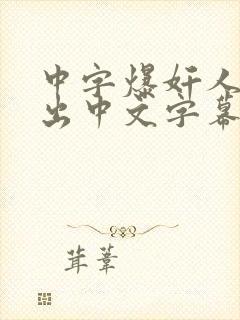 中字爆奸人
出中文字幕
茸葦